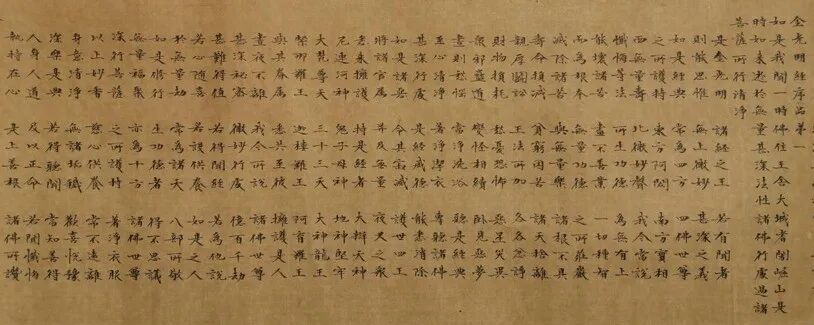 金光明經序品第一
如是我聞一時佛住王舍大城耆闍崛山是
時如來遊於無量甚深法性諸佛行處過諸
菩薩所行清淨
是金光明 諸經之王 若有聞者
則能思惟 無上微妙 甚深之義
如是經典 常為四方 四佛世尊
之所護持 東方阿閦 南方寶相
西無量壽 北微妙聲 我今當說
懺悔等法 所生功德 為無有上
能壞諸苦 盡不善業 一切種智
而為根本 無量功德 之所莊嚴
滅除諸苦 與無量樂 諸根不具
壽命損減 貧窮困苦 諸天捨離
親厚鬪訟 王法所加 各各忿諍
財物損耗 愁憂恐怖 惡星災異
眾邪蠱道 變怪相續 臥見惡夢
晝則愁惱 當淨洗浴 聽是經典
至心清淨 著淨潔衣 專聽諸佛
甚深行處 是經威德 能悉消除
如是諸惡 令其寂滅 護世四王
將諸官屬 并及無量 夜叉之眾
悉來擁護 持是經者 大辯天神
尼連河神 鬼子母神 地神堅牢
大梵尊天 三十三天 大神龍王
緊那羅王 迦樓羅王 阿脩羅王
與其眷屬 悉共至彼 擁護是人
晝夜不離 我今所說 諸佛世尊
甚深秘密 微妙行處 億百千劫
甚難得值 若得聞經 若為他說
若心隨喜 若設供養 如是之人
於無量劫 常為諸天 八部所敬
如是修行 生功德者 得不思議
無量福聚 亦為十方 諸佛世尊
深行菩薩 之所護持 著淨衣服
以上妙香 慈心供養 常不遠離
身意清淨 無諸垢穢 歡喜悅豫
深樂是典 若得聽聞 當知善得
人身人道 及以正命 若聞懺悔
執持在心 是上善根 諸佛所讚